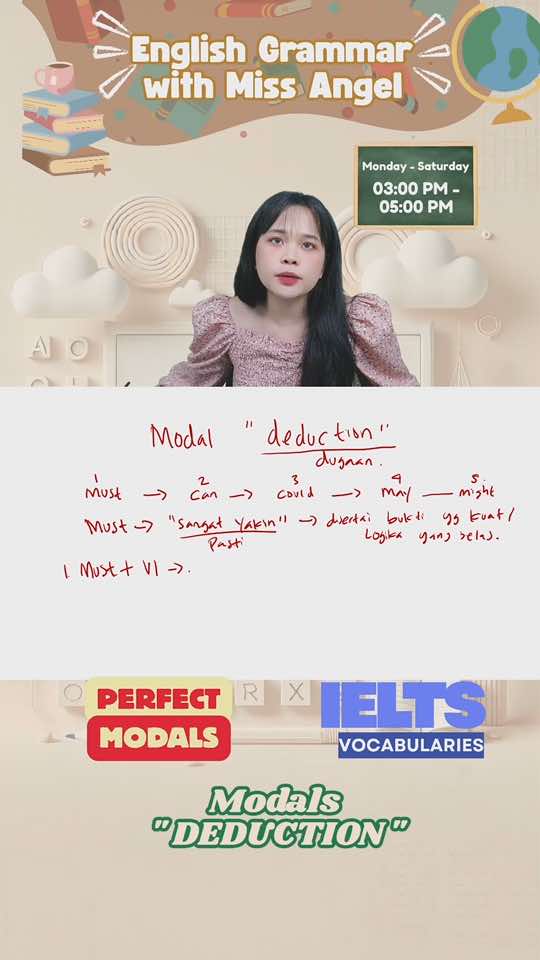 English Grammar
with Miss Angel
Monday - Saturday
03:00 PM -
05:00 PM
A O
Modal "deduction"
dugaan.
1 2 3 4 5.
Must → can → could → may — might
Must → "sangat yakin" → disertai bukti yg kuat/
Pasti logika yang jelas.
1 Must + V1 → .
R X
PERFECT
MODALS
IELTS
VOCABULARIES
Modals
"DEDUCTION"